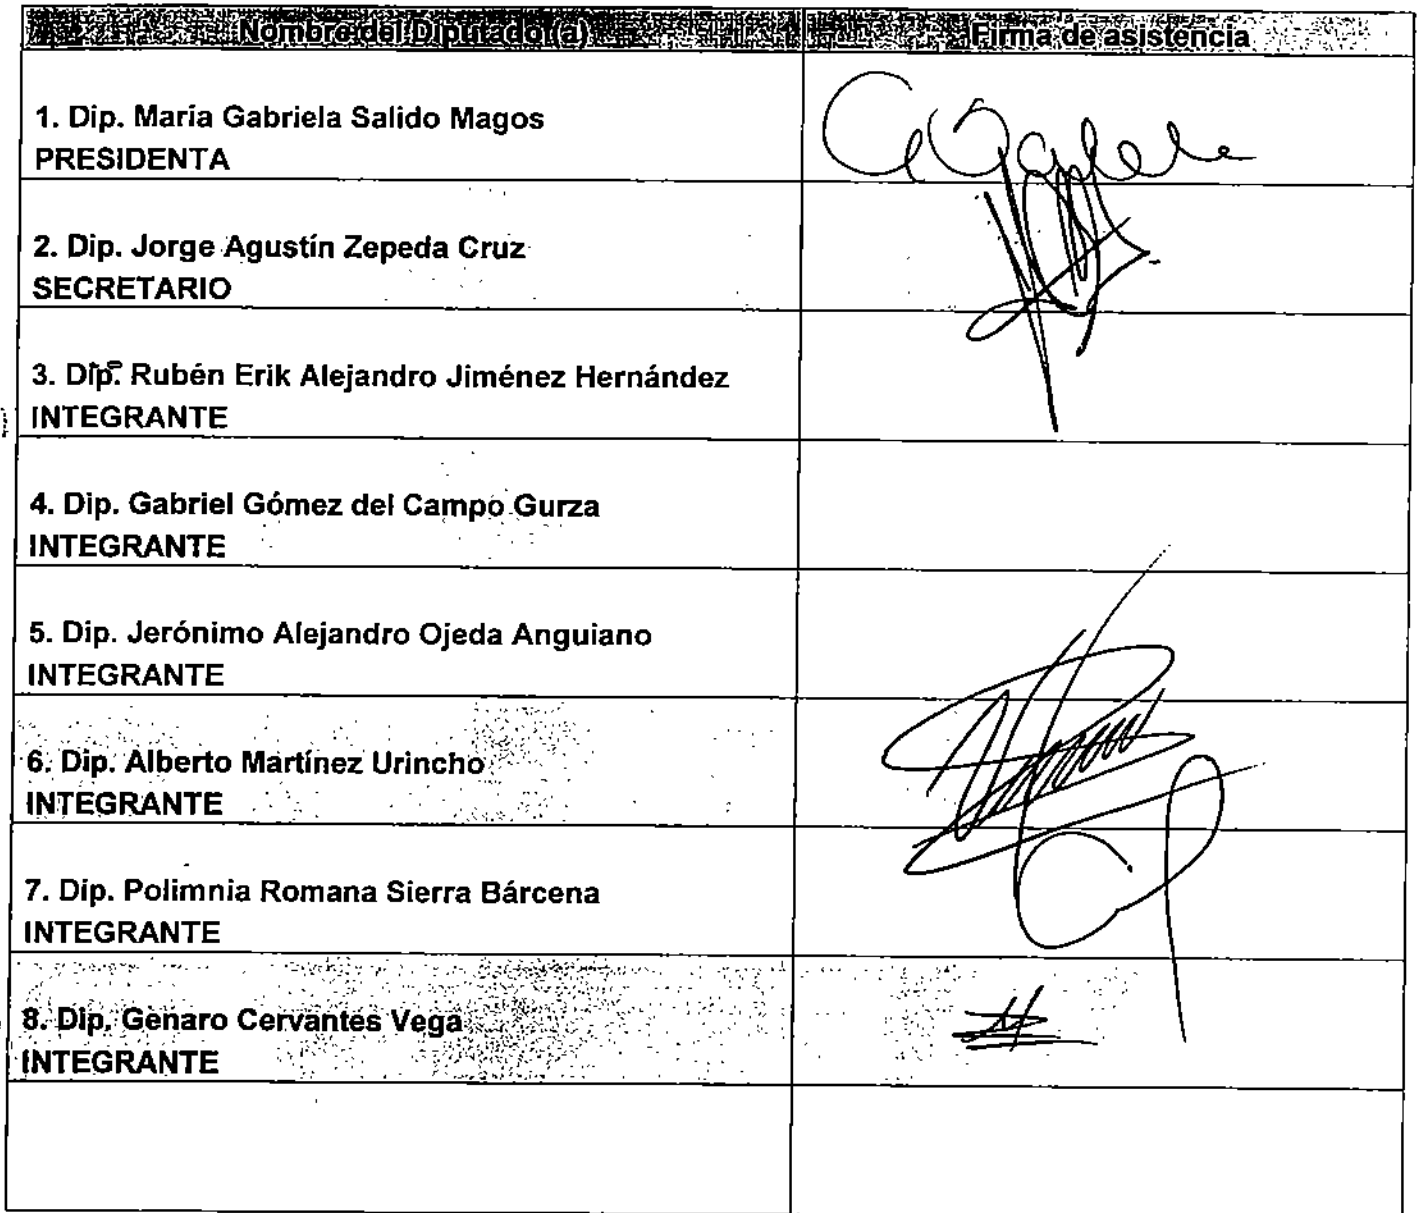 Nombre del Diputado(a)
Firma de asistencia
1. Dip. María Gabriela Salido Magos
PRESIDENTA
2. Dip. Jorge Agustín Zepeda Cruz
SECRETARIO
3. Dip. Rubén Erik Alejandro Jiménez Hernández
INTEGRANTE
4. Dip. Gabriel Gómez del Campo Gurza
INTEGRANTE
5. Dip. Jerónimo Alejandro Ojeda Anguiano
INTEGRANTE
6. Dip. Alberto Martínez Urincho
INTEGRANTE
7. Dip. Polimnia Romana Sierra Bárcena
INTEGRANTE
8. Dip. Genaro Cervantes Vega
INTEGRANTE